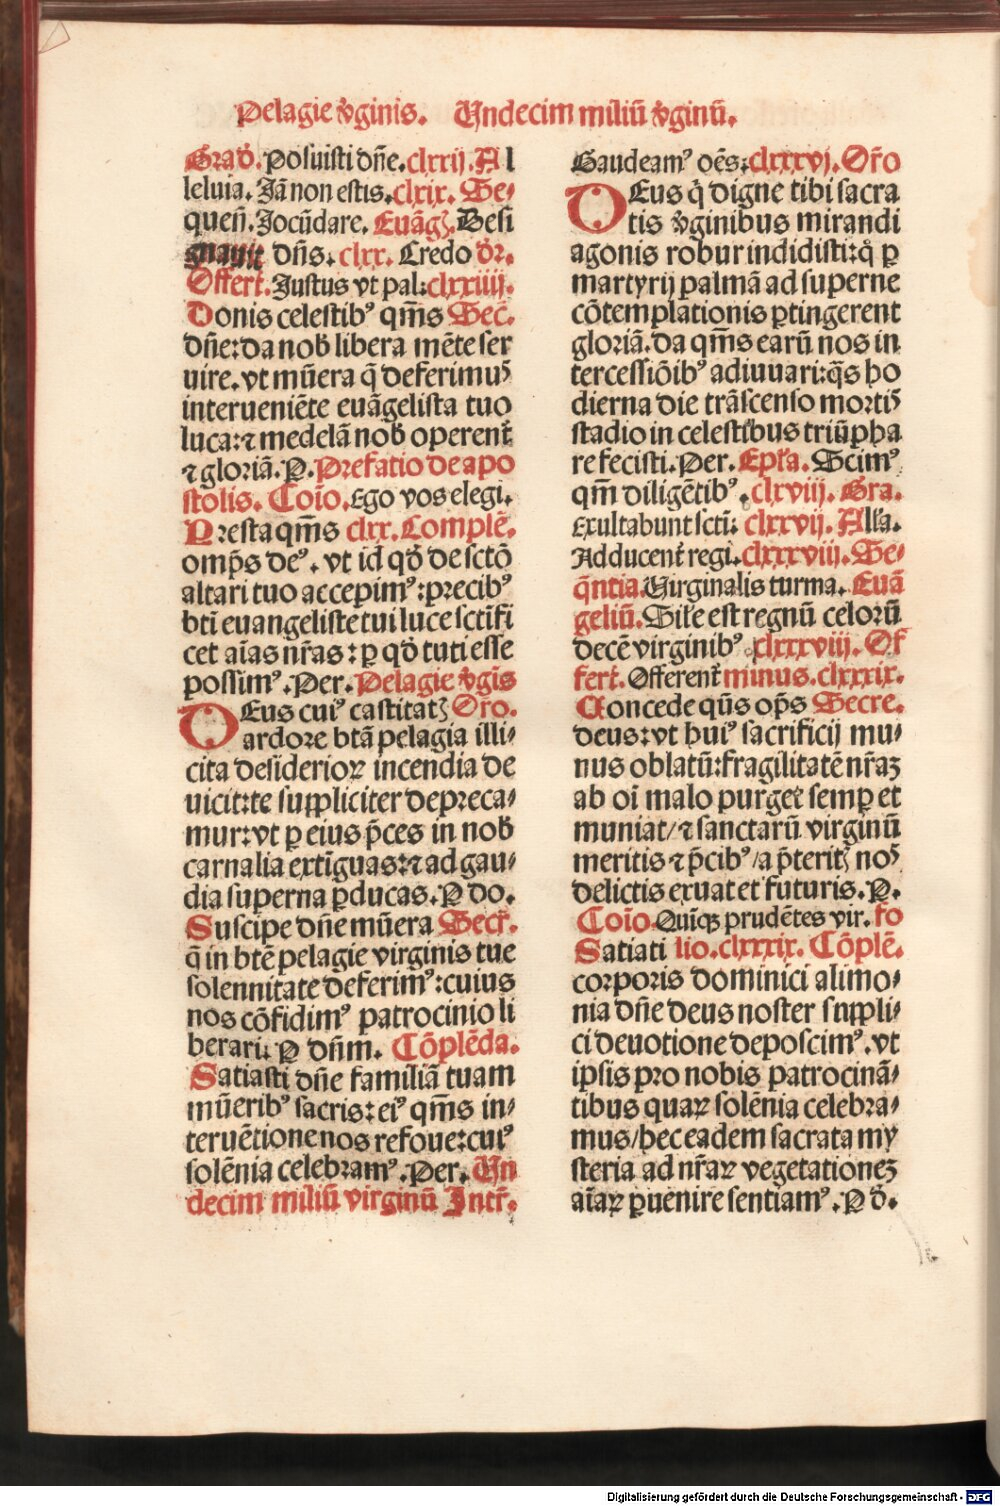 Pelagie v̄ginis. Undecim miliū v̄ginū.
Grad̄. Posuisti dn̄e. clxxij. Al
leluia. Jā non estis. clxix. Se⸗
quen̄. Jocūdare. Euāgꝫ. Desi
gnauit dn̄s. clxx. Credo d̄r.
Offert̄. Justus vt pal: clxxiiij.
Donis celestibꝰ qm̄s Sec̄.
dn̄e: da nob̄ libera mēte ser
uire. vt mūera q̄ deferimuˢ
interueniēte euāgelista tuo
luca: ⁊ medelā nob̄ operent̄
⁊ gloriā. P. Prefatio de apo
stolis. Coīo. Ego vos elegi.
Presta qm̄s clxx. Complē.
omp̄s deꝰ. vt id qd̄ de sctō
altari tuo accepimꝰ: precibꝰ
bt̄i euangeliste tui luce sct̄ifi
cet aīas nr̄as: ꝑ qd̄ tuti esse
possimꝰ. Per. Pelagie v̄gīs
DEus cuiꝰ castitatꝫ Or̄o.
ardore btā pelagia illi⸗
cita desiderioꝝ incendia de
uicit: te suppliciter depreca⸗
mur: vt ꝑ eius p̄ces in nob̄
carnalia extīguas: ⁊ ad gau⸗
dia superna ꝑducas. P do.
Suscipe dn̄e mūera Secr̄.
q̄ in btē pelagie virginis tue
solennitate deferimꝰ: cuius
nos cōfidimꝰ patrocinio li
berari: P dn̄m. Cōplēda.
Satiasti dn̄e familiā tuam
mūeribꝰ sacris: eiꝰ qm̄s in⸗
teruētione nos refoue: cuiꝰ
solēnia celebramꝰ. Per. Un
decim miliū virginū Intr̄.
Gaudeamꝰ oēs: clxxxvj. Or̄o
DEus q̇ digne tibi sacra
tis v̄ginibus mirandi
agonis robur indidisti: q̇ ꝑ
martyrij palmā ad superne
cōtemplationis ꝑtingerent
gloriā. da qm̄s earū nos in
tercessiōibꝰ adiuuari: q̄s ho
dierna die trāscenso mortiˢ
stadio in celestibus triūpha
re fecisti. Per. Epl̄a. Scimꝰ
qm̄ diligētibꝰ. clxviij. Gra.
Exultabunt sctī: clxxvij. All̄a.
Adducent̄ regi. clxxxviij. Se⸗
q̄ntia. Uirginalis turma. Euā
geliū. Sil̄e est regnū celorū
decē virginibꝰ clxxxviij. Of
fert̄. Offerent̄ minus. clxxxix.
Concede qūs op̄s Secre.
deus: vt huiꝰ sacrificij mu⸗
nus oblatū: fragilitatē nr̄aꝫ
ab oī malo purget semꝑ et
muniat/ ⁊ sanctarū virginū
meritis ⁊ p̄cibꝰ/ a p̄teritꝫ noˢ
delictis exuat et futuris. P.
Coīo. Quīqꝫ prudētes vir. fo
Satiati lio. clxxxix. Cōplē.
corporis dominici alimo⸗
nia dn̄e deus noster suppli⸗
ci deuotione deposcimꝰ. vt
ipsis pro nobis patrocinā⸗
tibus quaꝝ solēnia celebra⸗
mus/ hec eadem sacrata my
steria ad nr̄aꝝ vegetationeꝫ
aīaꝝ ꝑuenire sentiamꝰ. P d̄.
Digitalisierung gefördert durch die Deutsche Forschungsgemeinschaft - DFG